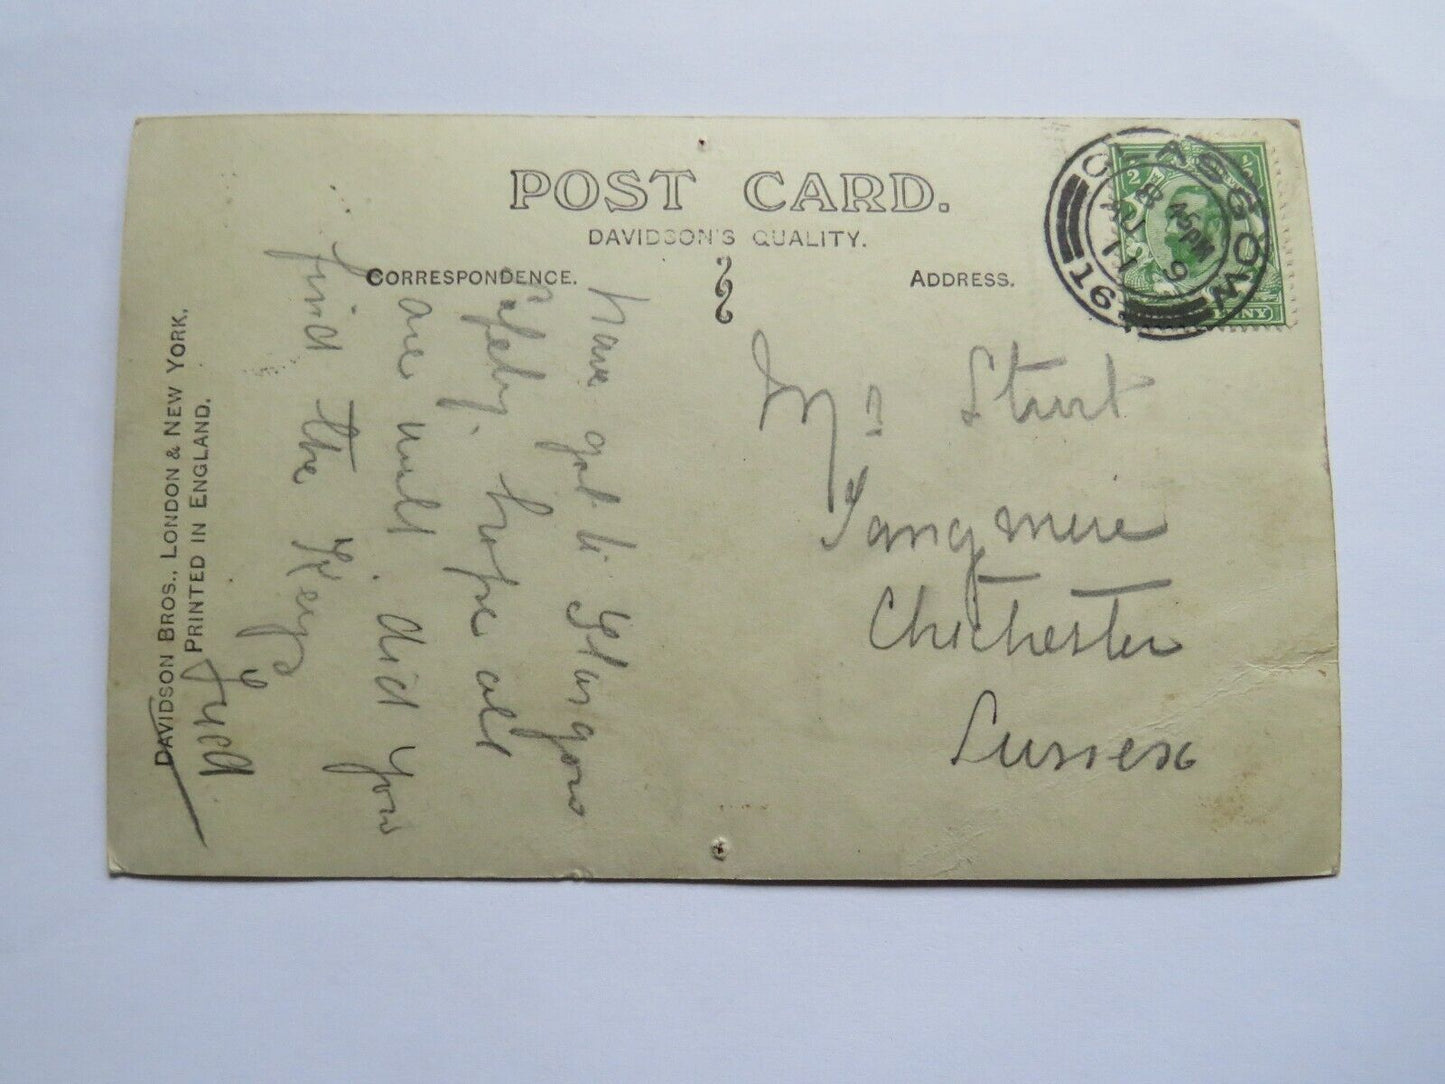 POST CARD.
DAVIDSON'S QUALITY.
CORRESPONDENCE.
ADDRESS.
have got to Glasgow
safely. hope all
are well. did you
find the Keys
Fred
Mrs Sturt
Tangmere
Chichester
Sussex
DAVIDSON BROS., LONDON & NEW YORK.
PRINTED IN ENGLAND.
GLASGOW
8 45 PM
AU 9
11